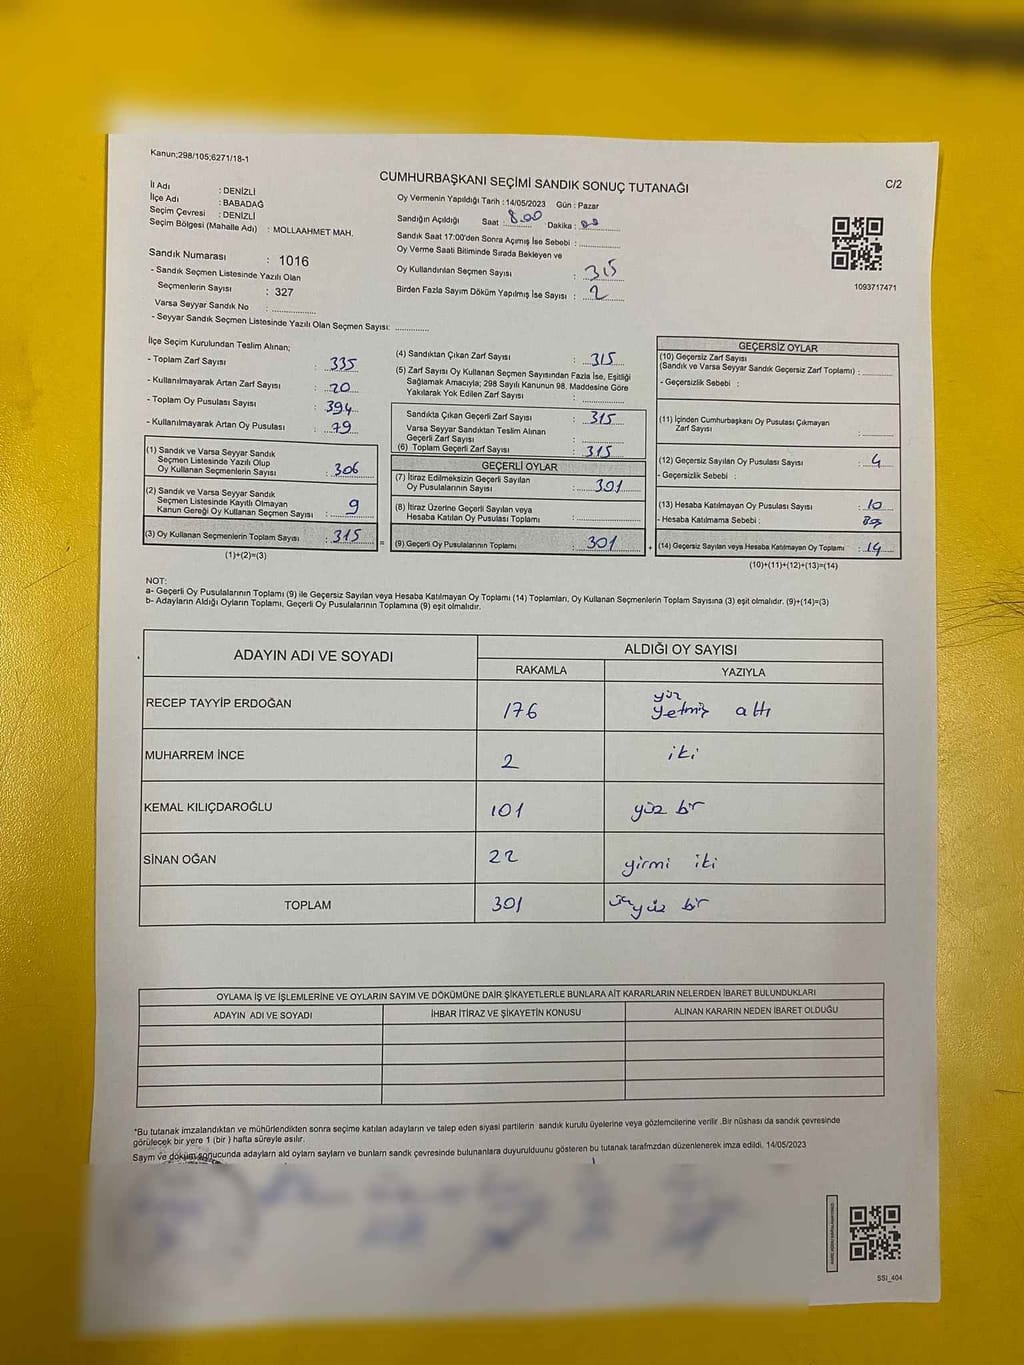 Kanun;298/105;6271/18-1
CUMHURBAŞKANI SEÇİMİ SANDIK SONUÇ TUTANAĞI
C/2
İl Adı : DENİZLİ
İlçe Adı : BABADAĞ
Seçim Çevresi : DENİZLİ
Seçim Bölgesi (Mahalle Adı) : MOLLAAHMET MAH.
Sandık Numarası : 1016
- Sandık Seçmen Listesinde Yazılı Olan
Seçmenlerin Sayısı : 327
Varsa Seyyar Sandık No :
- Seyyar Sandık Seçmen Listesinde Yazılı Olan Seçmen Sayısı:
Oy Vermenin Yapıldığı Tarih : 14/05/2023 Gün : Pazar
Sandığın Açıldığı Saat : 8.00 Dakika : 00
Sandık Saat 17:00'den Sonra Açımış İse Sebebi :
Oy Verme Saati Bitiminde Sırada Bekleyen ve
Oy Kullandırılan Seçmen Sayısı : 315
Birden Fazla Sayım Döküm Yapılmış İse Sayısı : 2
1093717471
İlçe Seçim Kurulundan Teslim Alınan;
- Toplam Zarf Sayısı : 335
- Kullanılmayarak Artan Zarf Sayısı : 20
- Toplam Oy Pusulası Sayısı : 394
- Kullanılmayarak Artan Oy Pusulası : 79
(1) Sandık ve Varsa Seyyar Sandık
Seçmen Listesinde Yazılı Olup
Oy Kullanan Seçmenlerin Sayısı : 306
(2) Sandık ve Varsa Seyyar Sandık
Seçmen Listesinde Kayıtlı Olmayan
Kanun Gereği Oy Kullanan Seçmen Sayısı : 9
(3) Oy Kullanan Seçmenlerin Toplam Sayısı : 315
(1)+(2)=(3)
(4) Sandıktan Çıkan Zarf Sayısı : 315
(5) Zarf Sayısı Oy Kullanan Seçmen Sayısından Fazla İse, Eşitliği
Sağlamak Amacıyla; 298 Sayılı Kanunun 98. Maddesine Göre
Yakılarak Yok Edilen Zarf Sayısı :
Sandıkta Çıkan Geçerli Zarf Sayısı : 315
Varsa Seyyar Sandıktan Teslim Alınan
Geçerli Zarf Sayısı :
(6) Toplam Geçerli Zarf Sayısı : 315
GEÇERLİ OYLAR
(7) İtiraz Edilmeksizin Geçerli Sayılan
Oy Pusulalarının Sayısı : 301
(8) İtiraz Üzerine Geçerli Sayılan veya
Hesaba Katılan Oy Pusulası Toplamı :
= (9) Geçerli Oy Pusulalarının Toplamı : 301 +
GEÇERSİZ OYLAR
(10) Geçersiz Zarf Sayısı
(Sandık ve Varsa Seyyar Sandık Geçersiz Zarf Toplamı) :
- Geçersizlik Sebebi :
(11) İçinden Cumhurbaşkanı Oy Pusulası Çıkmayan
Zarf Sayısı :
(12) Geçersiz Sayılan Oy Pusulası Sayısı : 4
- Geçersizlik Sebebi :
(13) Hesaba Katılmayan Oy Pusulası Sayısı : 10
- Hesaba Katılmama Sebebi :
(14) Geçersiz Sayılan veya Hesaba Katılmayan Oy Toplamı : 14
(10)+(11)+(12)+(13)=(14)
NOT:
a- Geçerli Oy Pusulalarının Toplamı (9) ile Geçersiz Sayılan veya Hesaba Katılmayan Oy Toplamı (14) Toplamları, Oy Kullanan Seçmenlerin Toplam Sayısına (3) eşit olmalıdır. (9)+(14)=(3)
b- Adayların Aldığı Oyların Toplamı, Geçerli Oy Pusulalarının Toplamına (9) eşit olmalıdır.
ADAYIN ADI VE SOYADI
ALDIĞI OY SAYISI
RAKAMLA YAZIYLA
RECEP TAYYİP ERDOĞAN 176 yüz yetmiş altı
MUHARREM İNCE 2 iki
KEMAL KILIÇDAROĞLU 101 yüz bir
SİNAN OĞAN 22 yirmi iki
TOPLAM 301 üçyüz bir
OYLAMA İŞ VE İŞLEMLERİNE VE OYLARIN SAYIM VE DÖKÜMÜNE DAİR ŞİKAYETLERLE BUNLARA AİT KARARLARIN NELERDEN İBARET BULUNDUKLARI
ADAYIN ADI VE SOYADI İHBAR İTİRAZ VE ŞİKAYETİN KONUSU ALINAN KARARIN NEDEN İBARET OLDUĞU
*Bu tutanak imzalandıktan ve mühürlendikten sonra seçime katılan adayların ve talep eden siyasi partilerin sandık kurulu üyelerine veya gözlemcilerine verilir .Bir nüshası da sandık çevresinde
görülecek bir yere 1 (bir ) hafta süreyle asılır.
Sayım ve döküm sonucunda adayların ald oyların sayların ve bunların sandk çevresinde bulunanlara duyurulduunu gösteren bu tutanak tarafmzdan düzenlenerek imza edildi. 14/05/2023
SSI_404